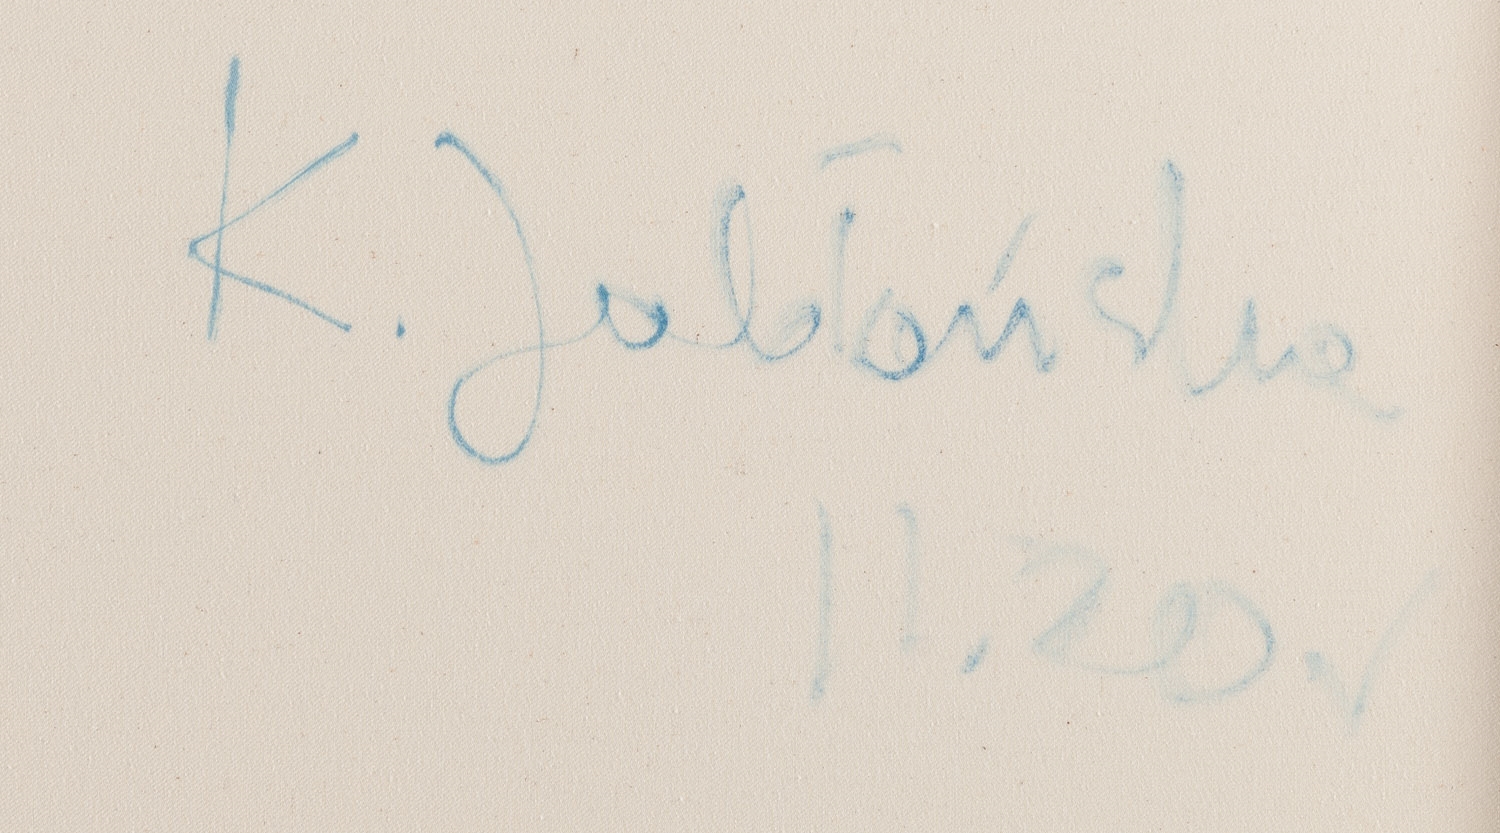 K. Jabłońska
11.20